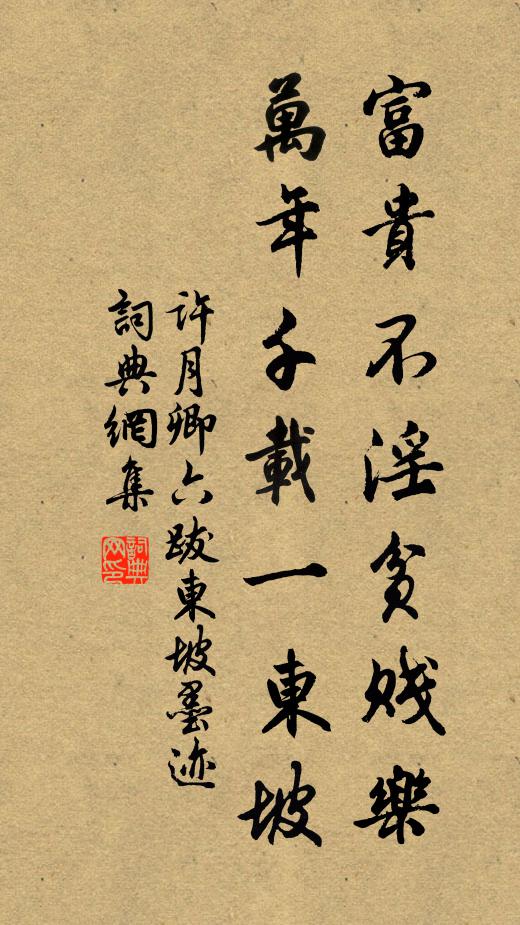 富貴不淫貧賤樂
萬年千載一東坡
許月卿六跋東坡墨迹
詞典網集
詞典网印